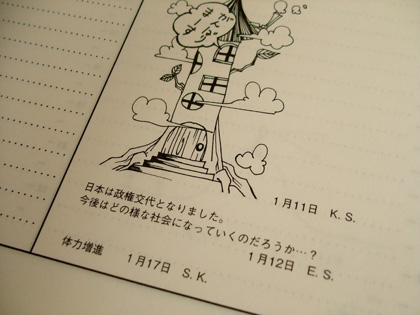 がんばります
1月11日 K. S.
日本は政権交代となりました。
今後はどの様な社会になっていくのだろうか…？
1月12日 E. S.
体力増進
1月17日 S. K.